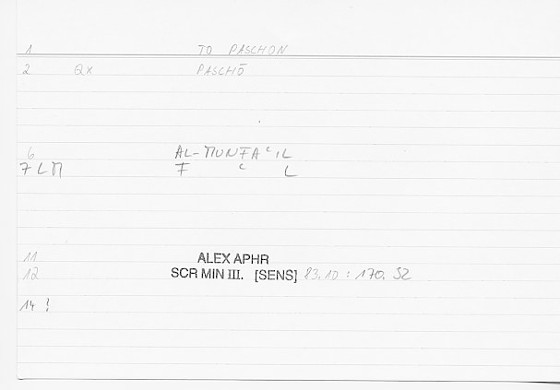 1 TO PASCHON
2 QX PASCHŌ
6 AL-MUNFAʿIL
7 LM F ʿ L
11 ALEX APHR
12 SCR MIN III. [SENS] 83.10 : 170.32
14 !